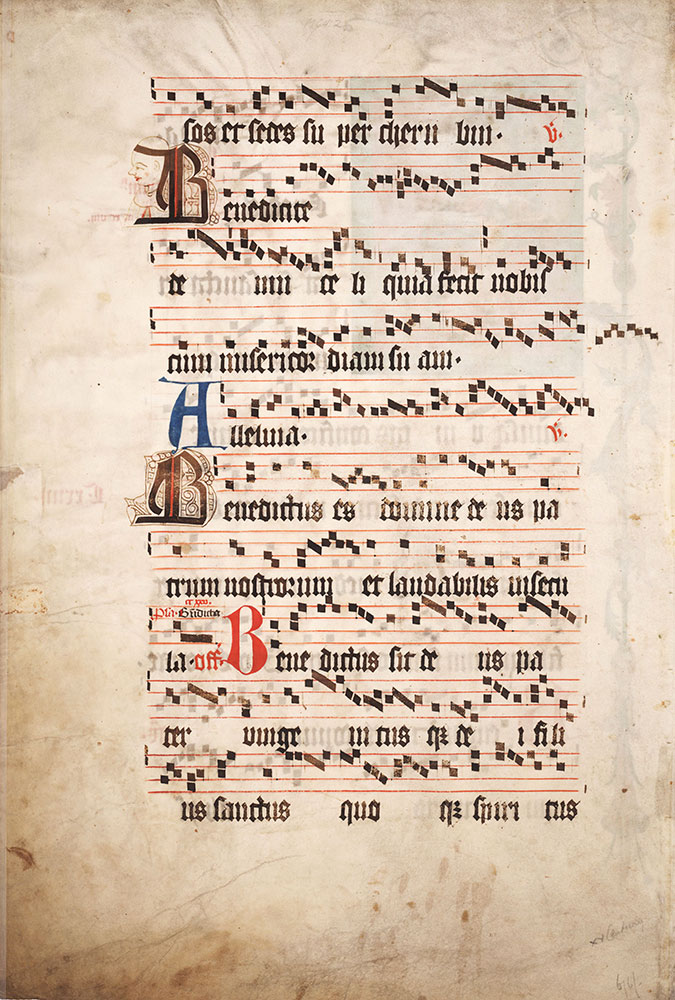 sos et sedes su per cheru bin. V.
Benedicite
de um ce li quia fecit nobis
cum misericor diam su am.
Alleluia. V.
Benedictus es domine de us pa
trum nostrorum et laudabilis in secu
la. off. Bene dictus sit de us pa
ter unige ni tus qz de i fili
us sanctus quo qz spiri tus